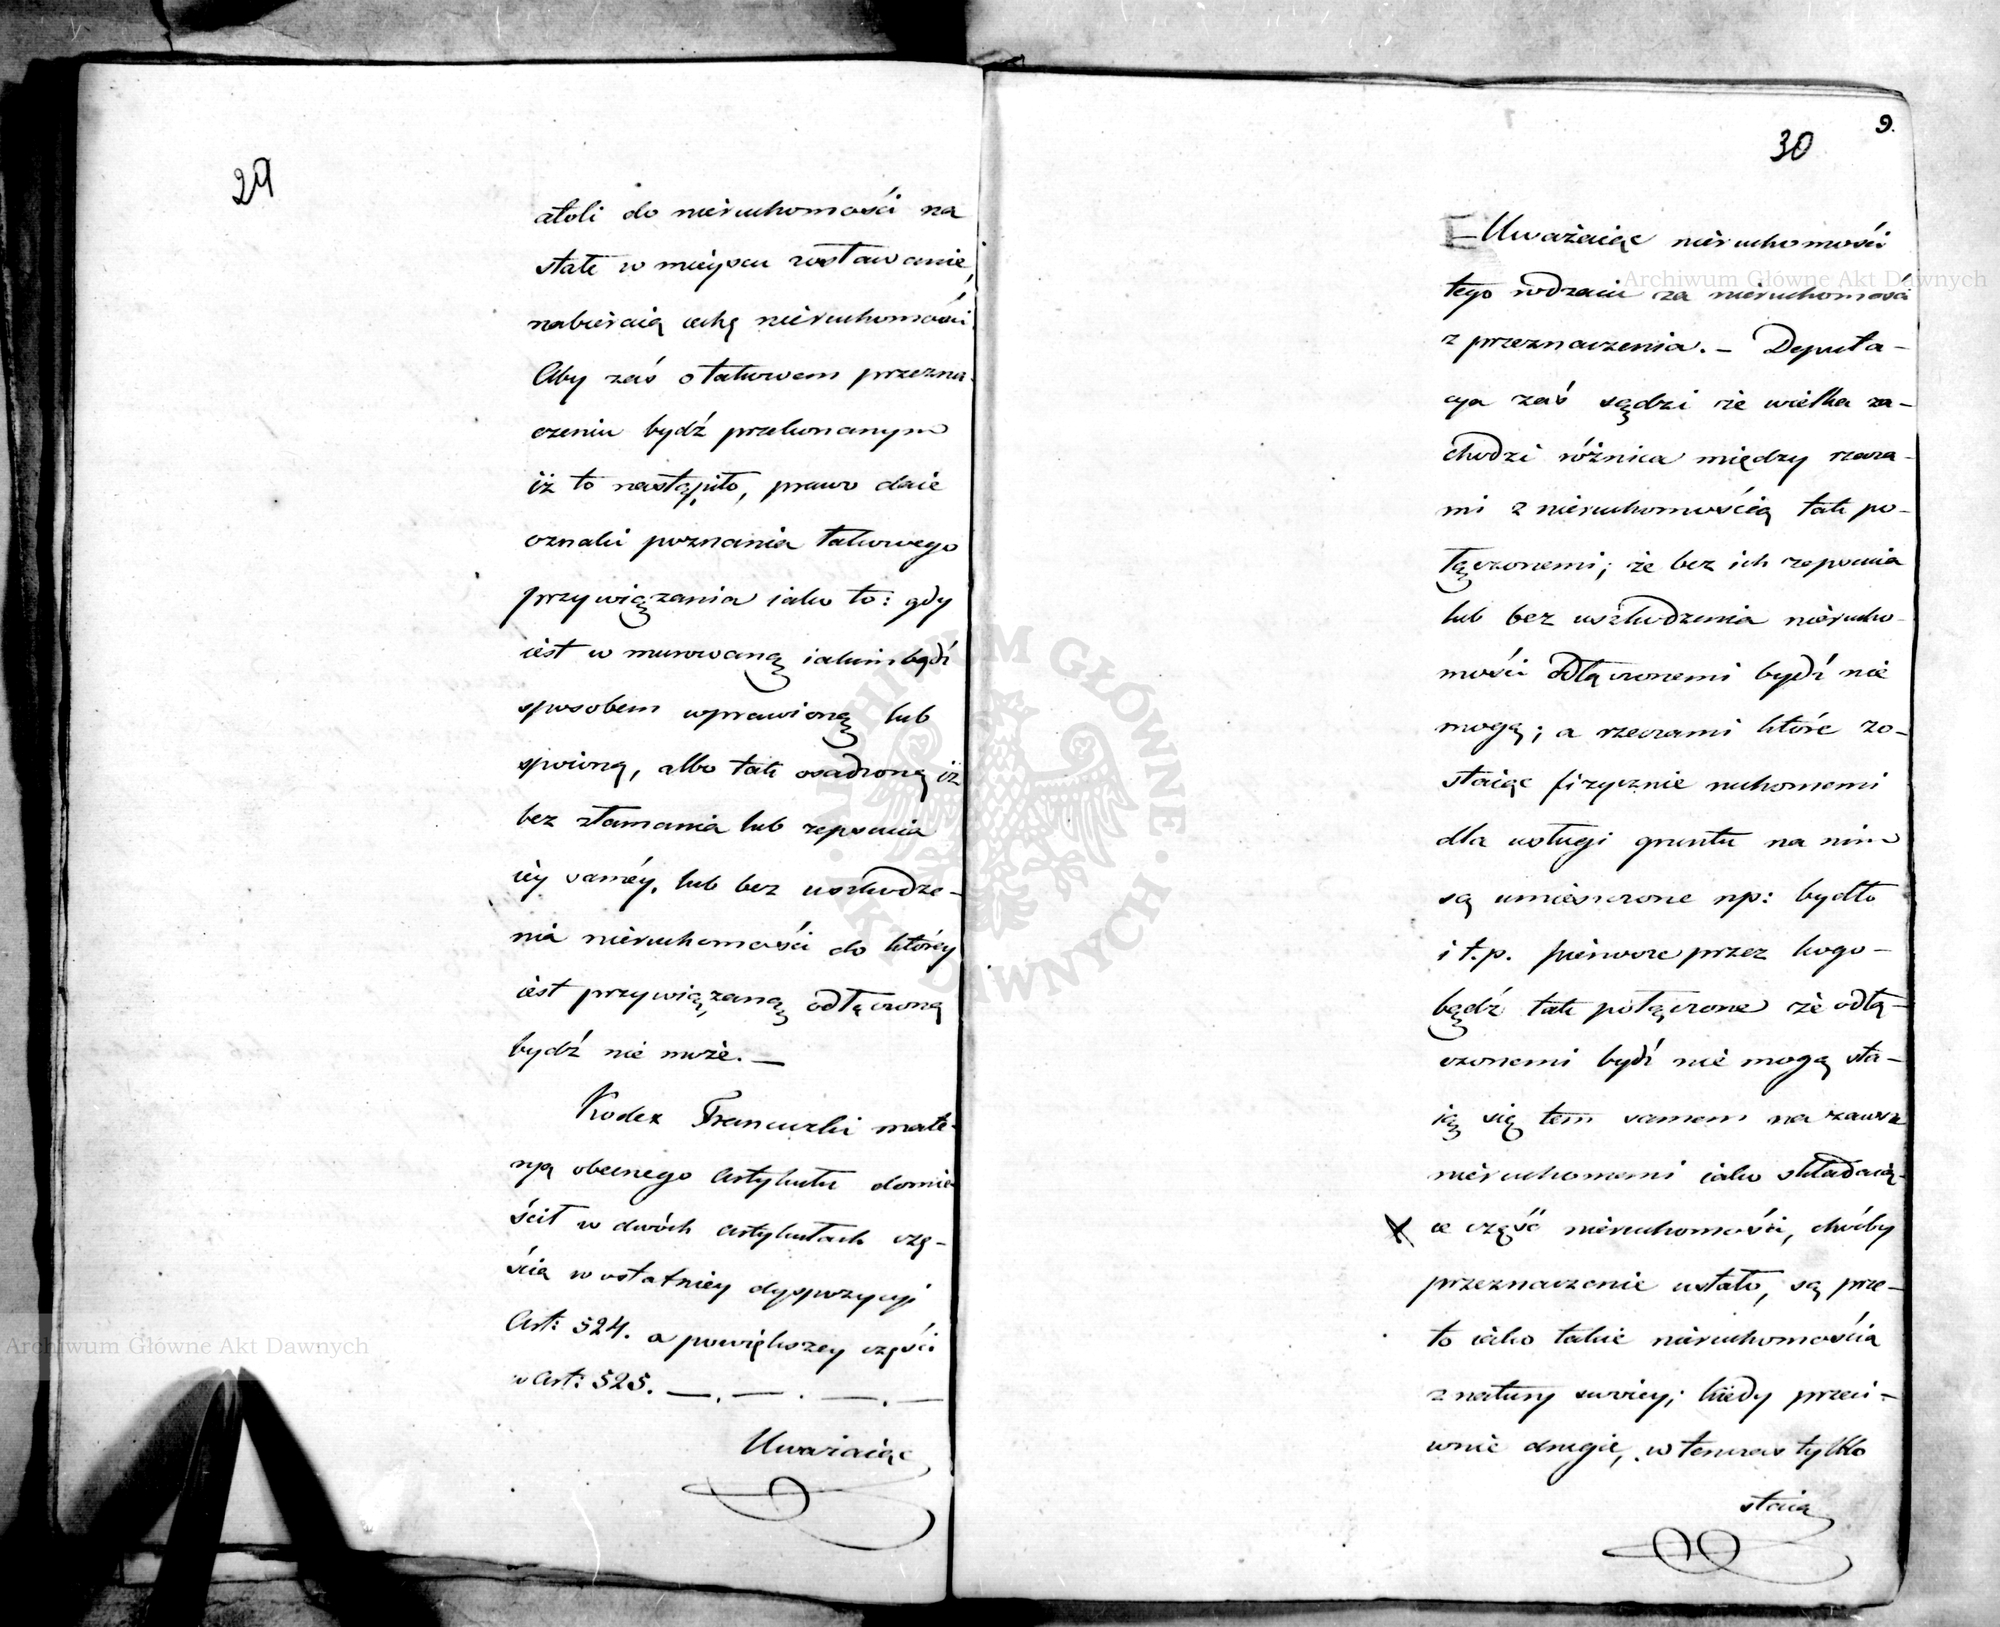 29
atoli do nieruchomości na
stałe w mieyscu zostawanie,
nabieraią cechę nieruchomości.
Aby zaś o takowem przezna-
czeniu bydź przekonanym
iż to nastąpiło, prawo daie
oznaki poznania takowego
przywiązania iako to: gdy
iest w murowaną iakimbądź
sposobem wprawioną lub
spoioną, albo tak osadzoną iż
bez złamania lub zepsucia
iéy saméy, lub bez uszkodze-
nia nieruchomości do któréy
iest przywiązaną odłączoną
bydź nie może. —
Kodex Francuzki mate-
ryą obecnego Artykułu domie
ścił w dwóch Artykułach czę-
ścią w ostatniey dyspozycyi
Art: 524. a powiększey części
w Art: 525. — . — . — . —
Uważaiąc
9.
30
Uważaiąc nieruchomości
tego rodzaiu za nieruchomości
z przeznaczenia. — Deputa-
cya zaś sądzi że wielka za-
chodzi różnica między rzecza-
mi z nieruchomością tak po-
łączonemi; że bez ich zepsucia
lub bez uszkodzenia nierucho-
mości odłączonemi bydź nie
mogą; a rzeczami które zo-
staiąc fizycznie ruchomemi
dla usługi gruntu na nim
są umieszczone np: bydło
i t.p. pierwsze przez kogo-
bądź tak połączone że odłą-
czonemi bydź nie mogą sta-
ią się tem samem na zawsze
nieruchomemi iako składaią-
ce część nieruchomości, choćby
przeznaczenie ustało, są prze-
to iako takie nieruchomościa
z natury swoiey; kiedy przeci-
wnie drugie, w tenczas tylko
staią
Archiwum Główne Akt Dawnych
Archiwum Główne Akt Dawnych
ARCHIWUM GŁÓWNE AKT DAWNYCH